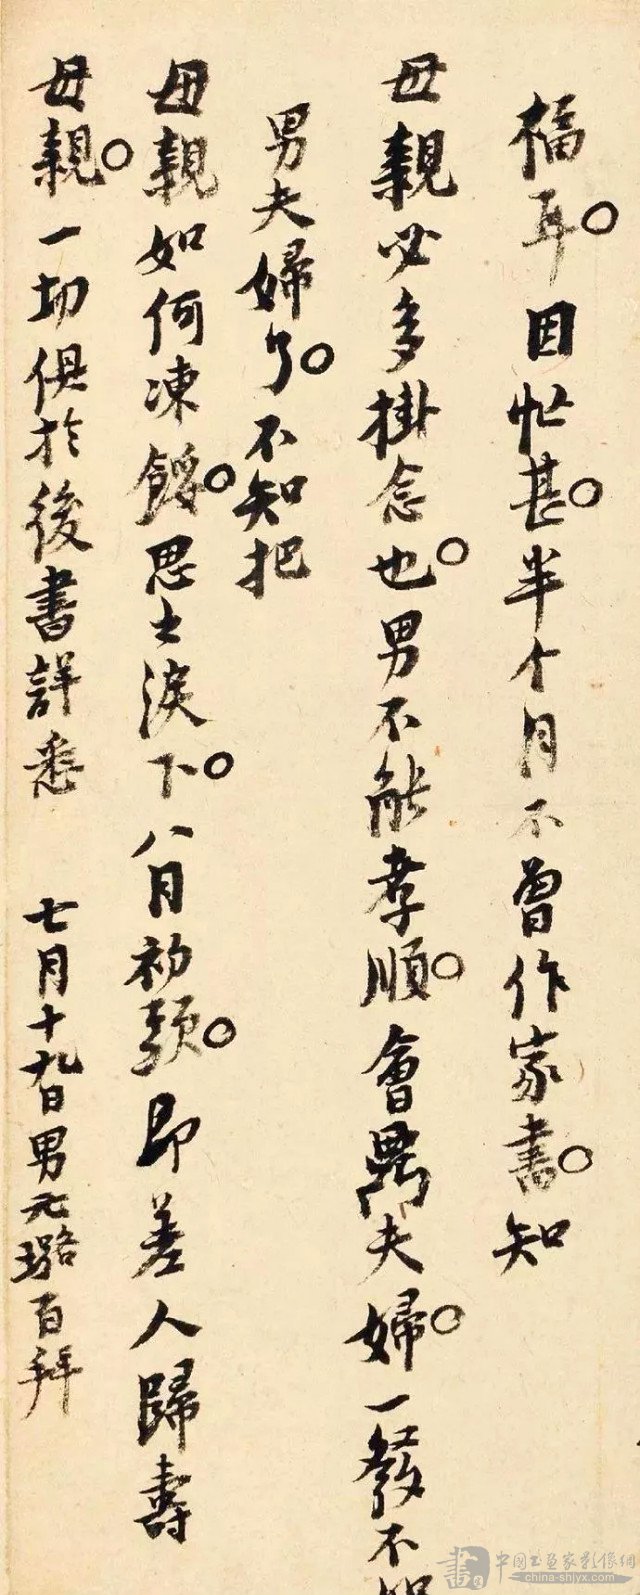 福耳。因忙甚。半个月不曾作家書。知
母親必多掛念也。男不能孝順。會鼎夫婦。一發不知
男夫婦了。不知把
母親如何凍餒。思之淚下。八月初頭。即差人歸壽
母親。一切俱於後書詳悉 七月十九日男元璐百拜
中国书画家影像網
china-shjyx.com